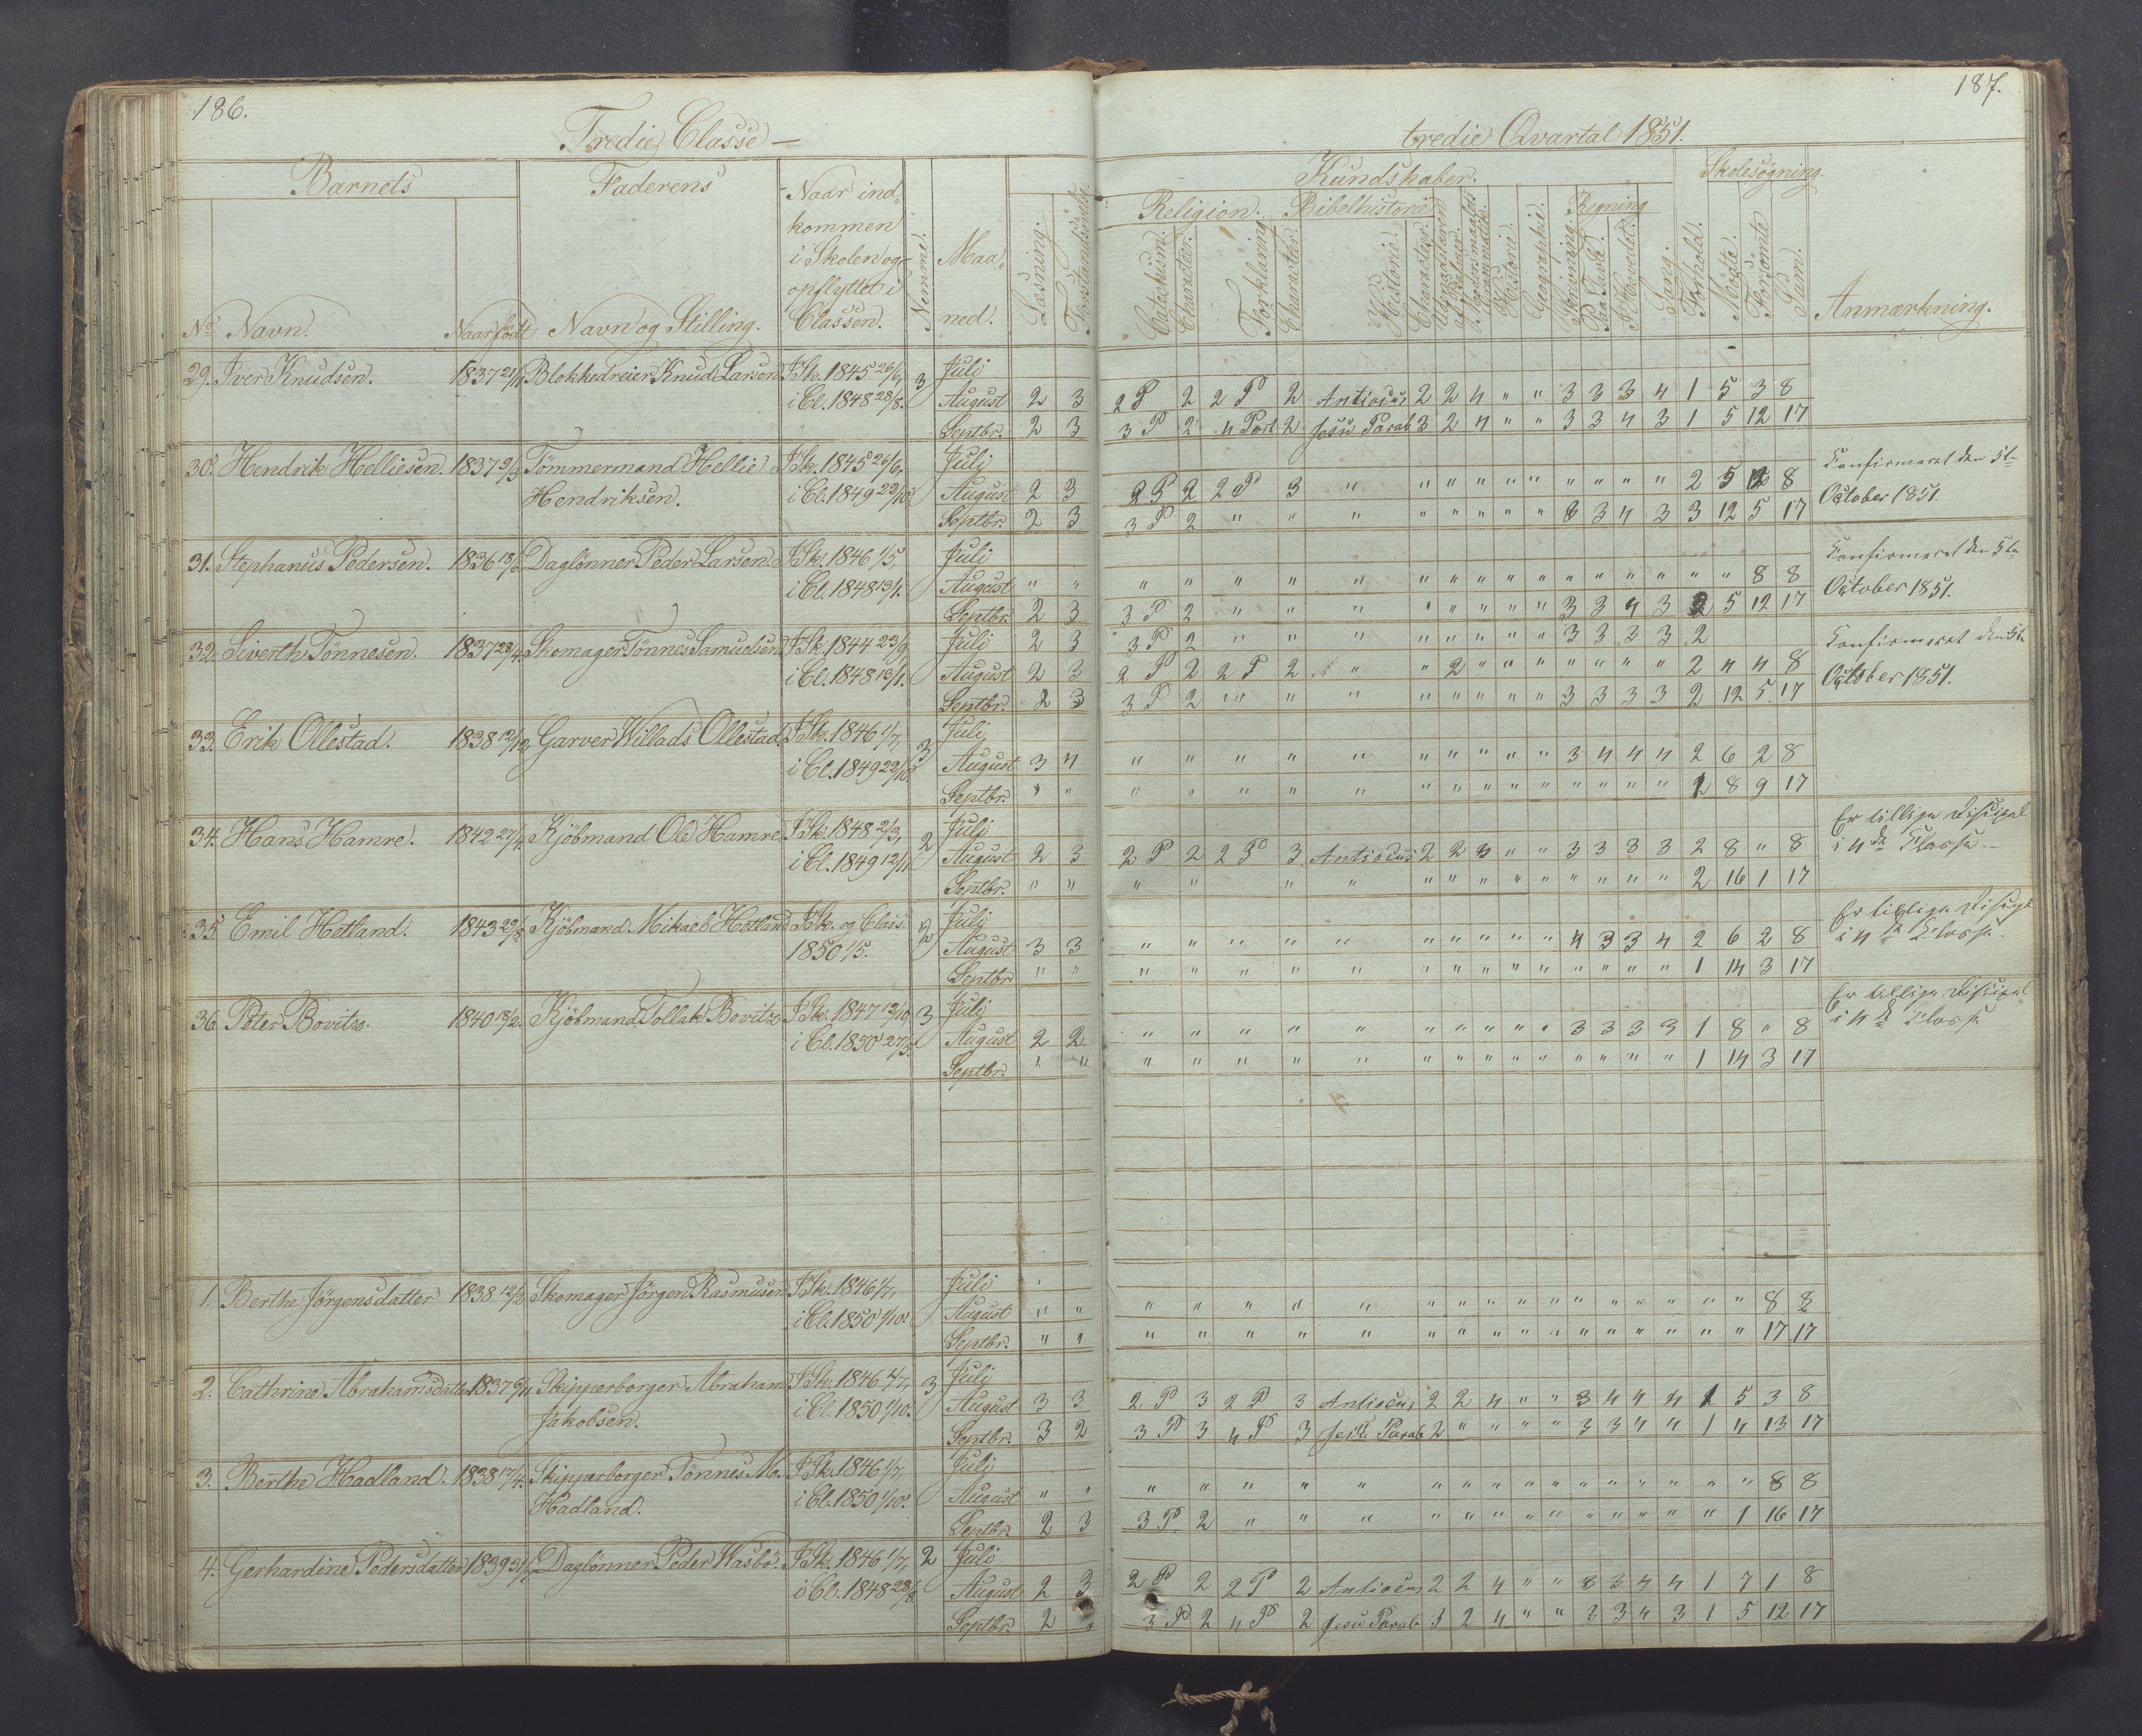 186.
Tredie Classe —
Barnets
Faderens
Naar ind-
kommen
i Skolen og
opflyttet i
Classen.
Nemme.
Maa-
ned.
Læsning.
Forstandsøvelse.
No Navn.
Naar født.
Navn og Stilling.
187.
tredie Qvartal 1851.
Kundskaber.
Skolesøgning.
Religion.
Bibelhistorie
Regning
Catechism.
Character.
Forklaring
Character.
Historie.
Character.
Modersmaalets
Grammatik.
Historie.
Geographie.
Skrivning.
Paa Tavle.
I Hovedet.
Sang.
Forhold.
Mødte.
Forsømte
Sum.
Anmærkning.
29. Iver Knudsen. 1837 21/11 Blokkedreier Knud Larsen I Sk. 1845 26/6, 3 Juli
i Cl. 1848 28/8. August 2 3 2 P 2 2 P 2 Antiocus 2 2 4 " " 3 3 3 4 1 5 3 8
Septbr. 2 3 3 P 2 4 Part 2 Jesu Parab 3 2 4 " " 3 3 4 3 1 5 12 17
30. Hendrik Helliesen. 1837 9/3 Tömmermand Hellie I Sk. 1845 26/6, Juli Konfirmeret den 5te
Hendriksen. i Cl. 1849 22/10 August 2 3 2 P 2 2 P 3 " " " " " " " " " " 2 5 2 8 October 1851.
Septbr. 2 3 3 P 2 " " " " " " " " 3 3 4 3 3 12 5 17
31. Stephanus Pedersen. 1836 18/6 Daglönner Peder Larsen. I Sk. 1846 1/5, Juli Konfirmeret den 5te
i Cl. 1848 13/1. August " " " " " " " " " " " " " " " " " " 8 8 October 1851.
Septbr. 2 3 3 P 2 " " " " " " " " 3 3 4 3 2 5 12 17
32. Siverth Tönnesen. 1837 28/4. Skomager Tönnes Samuelsen I Sk. 1844 23/9 Juli 2 3 3 P 2 " " " " " " " " 3 3 3 3 2 Konfirmeret den 5te
i Cl. 1848 13/1. August 2 3 2 P 2 2 P 2 " " 2 " " " " " " " 2 4 4 8 October 1851.
Septbr. 2 3 3 P 2 " " " " " " " " 3 3 3 3 2 12 5 17
33. Erik Ollestad. 1838 12/12 Garver Willads Ollestad I Sk. 1846 1/7, 3 Juli
i Cl. 1849 22/10 August 3 4 " " " " " " " " " " 3 4 4 4 2 6 2 8
Septbr. " " " " " " " " " " " " " " " " 1 8 9 17
34. Hans Hamre. 1842 27/4. Kjöbmand Ole Hamre I Sk. 1848 2/3, 2 Juli Er tillige Discipel
i Cl. 1849 12/11 August 2 3 2 P 2 2 P 3 Antiocus 2 2 3 " " 3 3 3 3 2 8 " 8 i 4de Classe.
Septbr. " " " " " " " " " " " " " " " 2 16 1 17
35. Emil Hetland. 1843 29/8 Kjöbmand Mikael Hetland I Sk. og Class. 2 Juli Er tillige Discipel
1850 1/5. August 3 3 " " " " " " " " " " 4 3 3 4 2 6 2 8 i 4de Classe.
Septbr " " " " " " " " " " " " " " " " 1 14 3 17
36. Peter Bovitz. 1840 18/2. Kjöbmand Tollak Bovitz I Sk. 1847 12/10 3 Juli Er tillige Discipel
i Cl. 1850 27/5. August 2 2 " " " " " " " " " " 3 3 3 3 1 8 " 8 i 4de Classe
Septbr. " " " " " " " " " " " " " " " " 1 14 3 17
1. Berthe Jörgensdatter 1838 12/2 Skomager Jörgen Rasmusen I Sk. 1846 1/7, Juli
i Cl. 1850 1/10. August " " " " " " " " " " " " " " " " " " 8 8
Septbr. " " " " " " " " " " " " " " " " " " 17 17
2. Cathrine Abrahamsdatter 1837 6/11 Skipperborger Abraham I Sk. 1846 1/7, 3 Juli
Jakobsen. i Cl. 1850 1/10. August 3 3 2 P 3 2 P 3 Antiocus 2 2 4 " " 3 4 4 4 1 5 3 8
Septbr. 3 2 3 P 3 4 P 3 Jesu Parab 2 " " " " 3 3 4 " 1 4 13 17
3. Berthe Hadland. 1838 17/4. Skipperborger Tönnes M. I Sk. 1846 1/7, Juli
Hadland. i Cl. 1850 1/10. August " " " " " " " " " " " " " " " " " " 8 8
Septbr. 2 3 3 P. 2 " " " " " " " " " " " " " 1 16 17
4. Gerhardine Pedersdatter 1839 31/1 Daglönner Peder Wasbö. I Sk. 1846 1/7, 2 Juli
i Cl. 1848 28/8. August 2 3 2 P 2 2 P 2 Antiocus 2 2 4 " " 3 3 4 4 1 7 1 8
Septbr. 2 3 P 2 4 P 2 Jesu Parab 3 2 4 " " 3 3 4 3 1 5 12 17